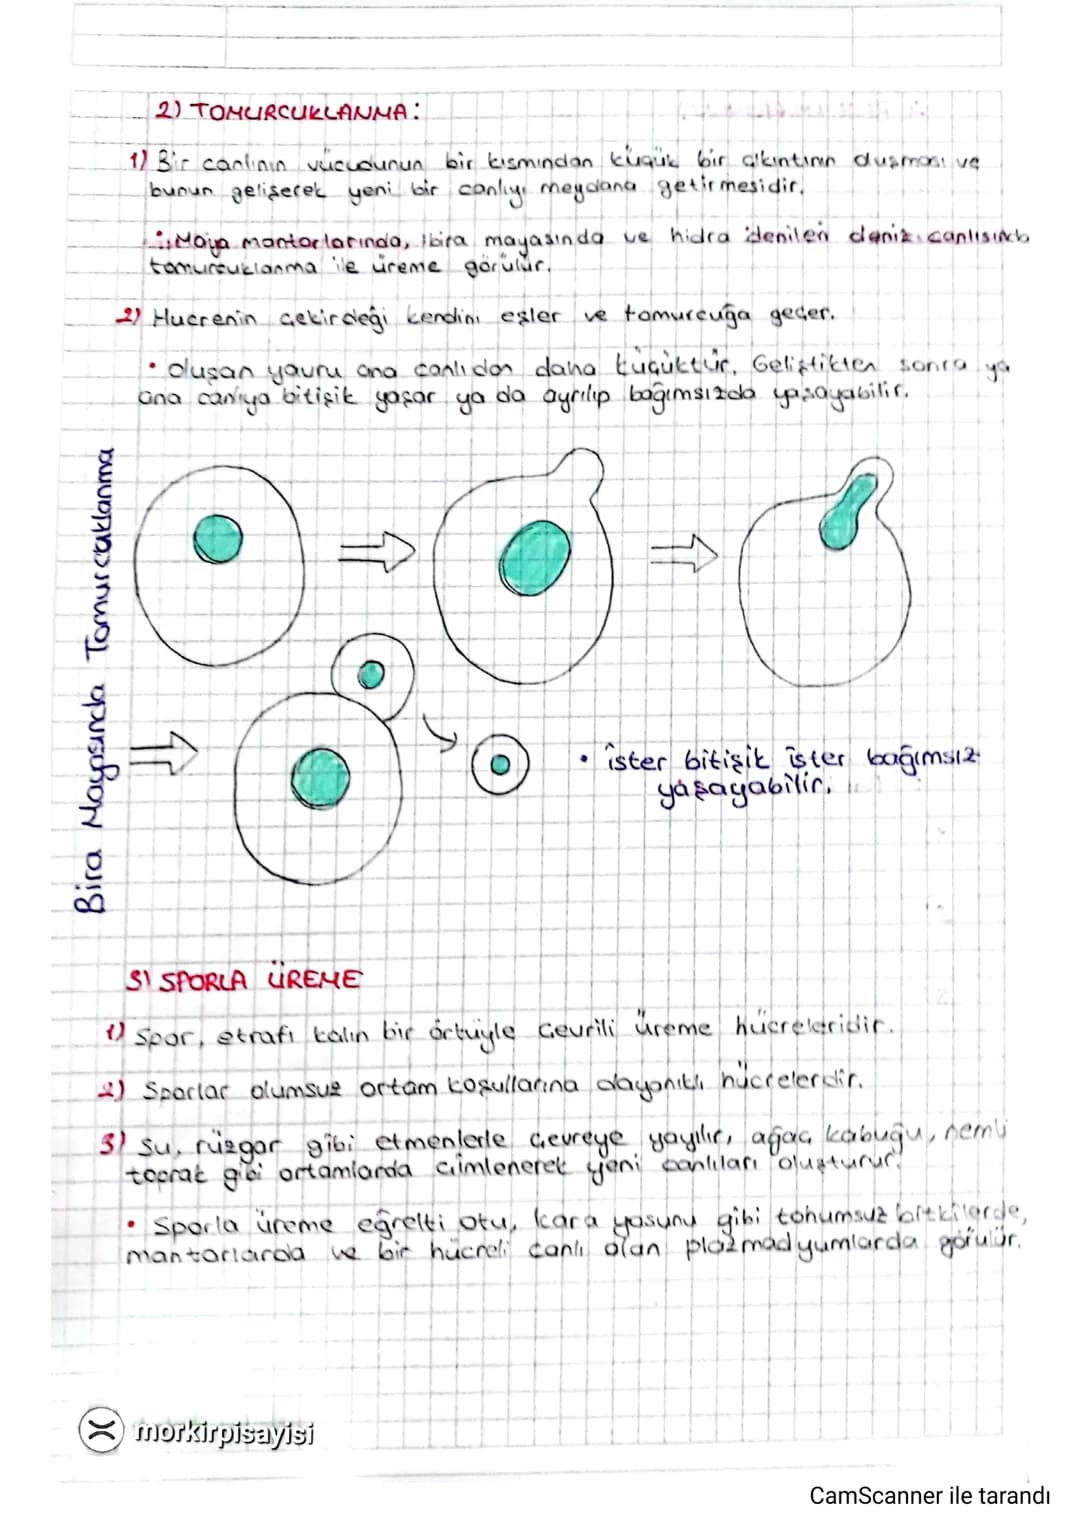 2) TOMURCUKLANMA:
1) Bir canlının vücudunun bir kısmından küçük bir çıkıntının oluşması ve
bunun gelişerek yeni bir canlıyı meydana getirmesidir.
Maya mantarlarında, bira mayasında ve hidra denilen deniz canlısında
tomurcuklanma ile üreme görülür.
2) Hücrenin çekirdeği kendini eşler ve tomurcuğa geçer.
• Oluşan yavru ana canlıdan daha küçüktür. Geliştikten sonra ya
ana canlıya bitişik yaşar ya da ayrılıp bağımsızda yaşayabilir.
Bira Mayasında Tomurcuklanma
• İster bitişik ister bağımsız
yaşayabilir.
3) SPORLA ÜREME
1) Spor, etrafı kalın bir örtüyle çevrili üreme hücreleridir.
2) Sporlar olumsuz ortam koşullarına dayanıklı hücrelerdir.
3) Su, rüzgar gibi etmenlerle çevreye yayılır, ağaç kabuğu, nemli
toprak gibi ortamlarda çimlenerek yeni canlıları oluşturur.
• Sporla üreme eğrelti otu, kara yosunu gibi tohumsuz bitkilerde,
mantarlarda ve bir hücreli canlı olan plazmadyumlarda görülür.
morkirpisayisi
CamScanner ile tarandı